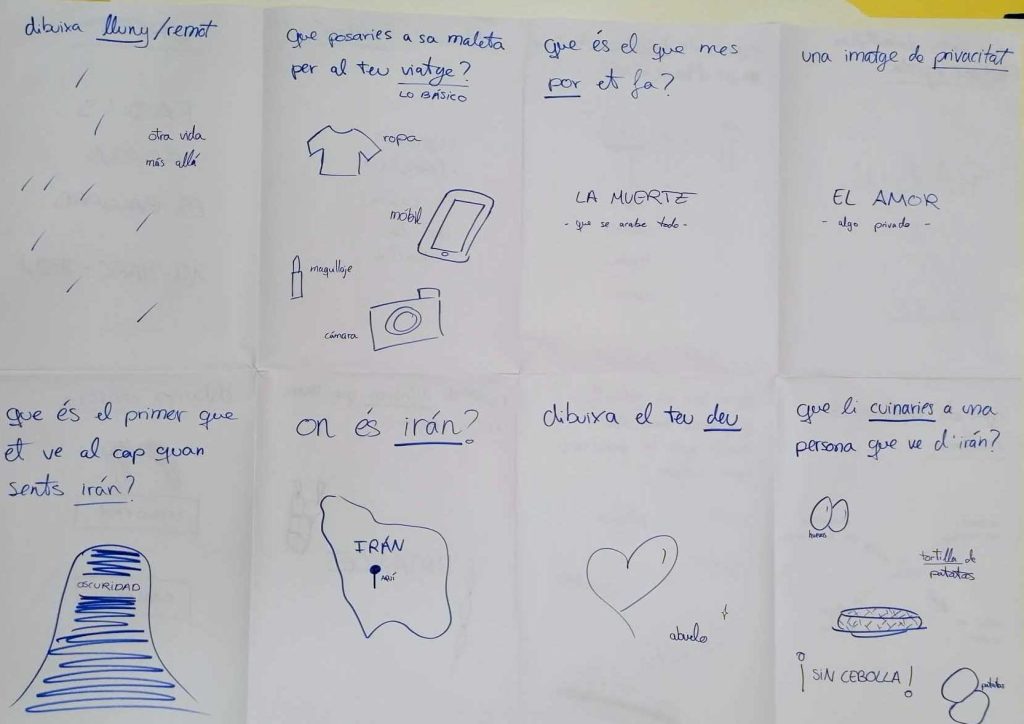 dibuixa lluny/remot
otra vida
más allá
que posaries a sa maleta
per al teu viatge?
LO BÁSICO
ropa
móbil
maquillaje
cámara
que és el que mes
por et fa?
LA MUERTE
- que se acabe todo -
una imatge de privacitat
EL AMOR
- algo privado -
que és el primer que
et ve al cap quan
sents irán?
OSCURIDAD
on és irán?
IRÁN
AQUÍ
dibuixa el teu deu
abuelo
que li cuinaries a una
persona que ve d'irán?
huevos
tortilla de
patatas
¡SIN CEBOLLA!
patatas